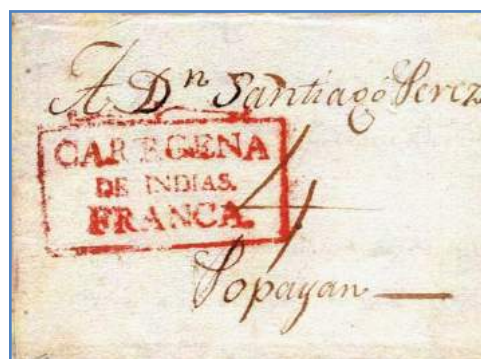 A Dⁿ Santiago Perez
CARTAGENA
DE INDIAS.
FRANCA.
4
Popayan